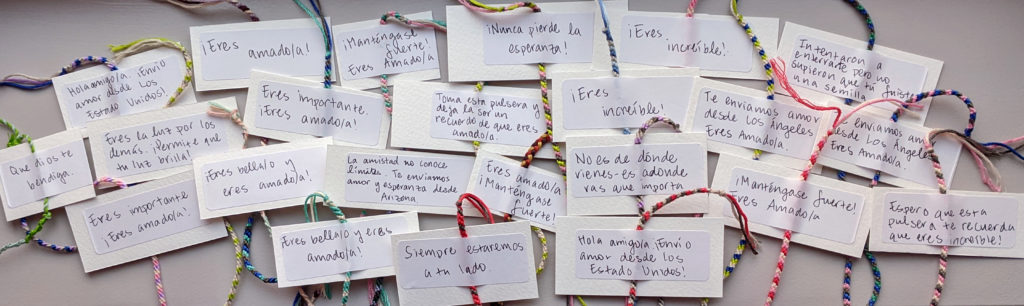 ¡Eres
amado/a!
¡Manténgase
fuerte!
Eres Amado/a
¡Nunca pierde la
esperanza!
¡Eres
increíble!
Intentaron a
enterrarte pero no
supieron que tu fuiste
una semilla
Hola amigo/a. ¡Envío
amor desde Los
Estado Unidos!
Eres importante.
¡Eres amado/a!
Toma esta pulsera y
deja la ser un
recuerdo de que eres
amado/a.
¡Eres
increíble!
Te enviamos amor
desde Los Ángeles
Eres Amado/a.
enviamos amor
desde Los Ángeles
Eres Amado/a.
Que dios te
bendiga.
Eres la luz por los
demás. ¡Permite que
tu luz brilla!
¡Eres bello/a y
eres amado/a!
La amistad no conoce
límites. Te enviamos
amor y esperanza desde
Arizona
Eres amado/a
¡Manténgase
fuerte!
No es de dónde
vienes - es adonde
vas que importa
¡Manténgase fuerte!
Eres Amado/a
Espero que esta
pulsera te recuerda
que eres increíble!
Eres importante
¡Eres amado/a!
¡Eres bello/a y eres
amado/a!
Siempre estaremos
a tu lado
Hola amigo/a ¡Envío
amor desde los
Estado Unidos!